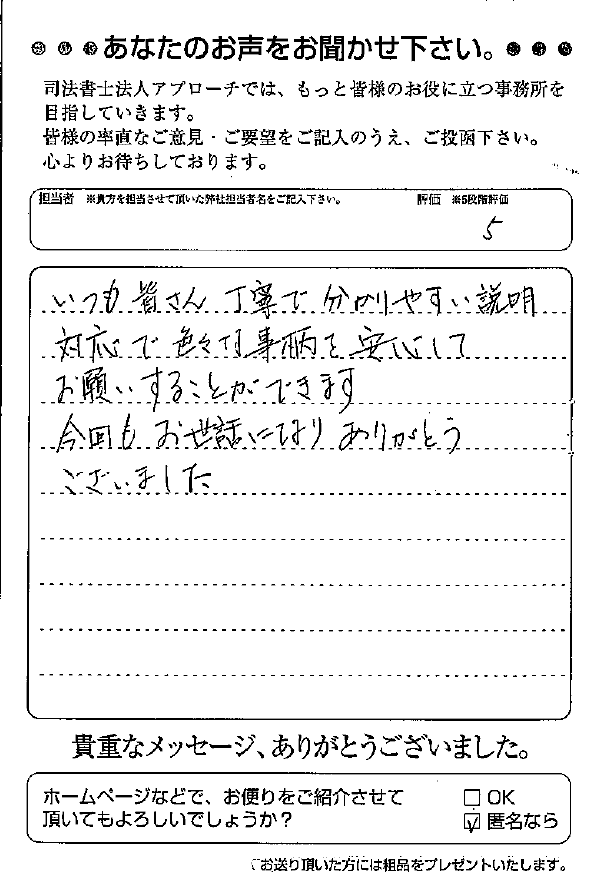 あなたのお声をお聞かせ下さい。
司法書士法人アプローチでは、もっと皆様のお役に立つ事務所を
目指していきます。
皆様の率直なご意見・ご要望をご記入のうえ、ご投函下さい。
心よりお待ちしております。
担当者 ※貴方を担当させて頂いた弊社担当者名をご記入下さい。 評価 ※5段階評価
5
いつも皆さん丁寧で分かりやすい説明
対応で色々な事柄を安心して
お願いすることができます
今回もお世話になりありがとう
ございました
貴重なメッセージ、ありがとうございました。
ホームページなどで、お便りをご紹介させて □ OK
頂いてもよろしいでしょうか？ ☑ 匿名なら
お送り頂いた方には粗品をプレゼントいたします。